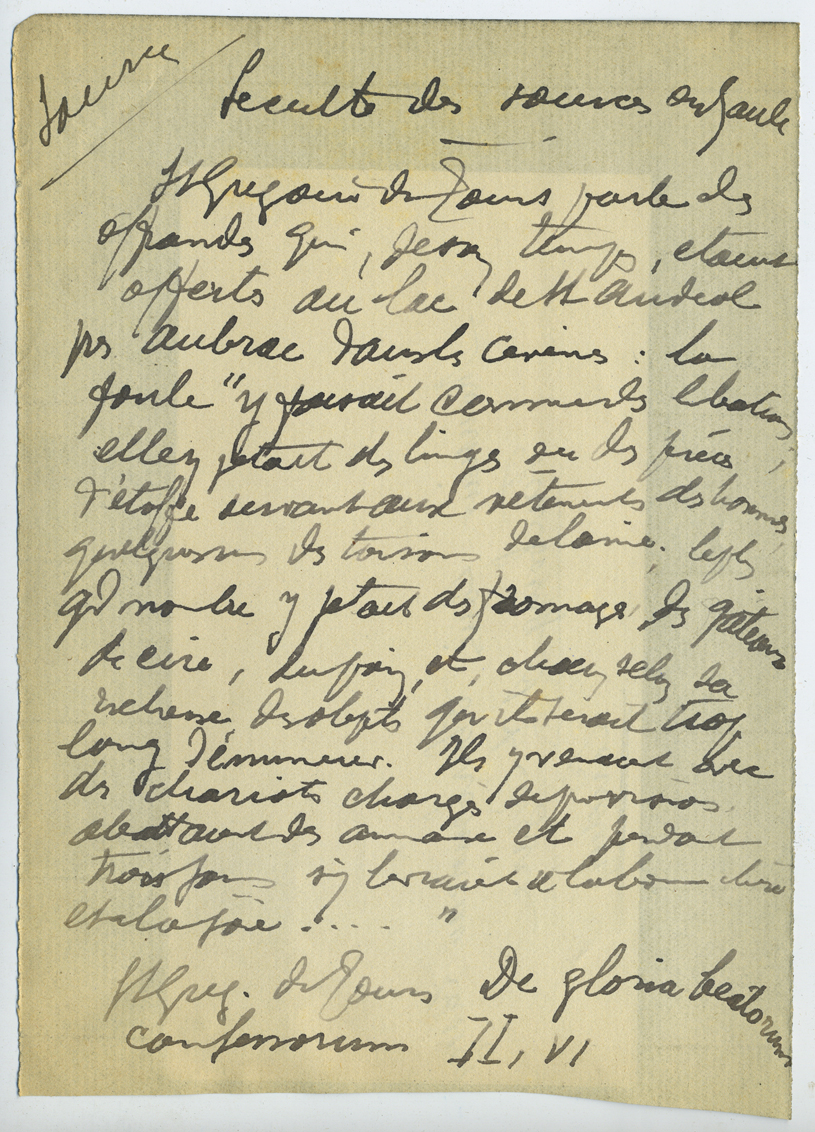 Source
Le culte des sources en Gaule
St Gregoire de Tours parle des
offrandes qui, de son temps, etaient
offerts au lac de St Andeol
pres Aubrac dans les Cevennes : la
foule "y faisait comme des libations,
elle y jetait des linges ou des pièces
d'étoffe servant aux vêtements des hommes,
quelques uns des toisons de laine; le plus
gd nombre y jetait des fromages, des gâteaux
de cire, du pain, et, chacun selon sa
richesse des objets qu'il serait trop
long d'énumerer. Ils y venaient avec
des chariots chargés de provisions
abattaient des animaux et pendant
trois jours s'y livraient à la bonne chère
et à la joie .... "
St Greg. de Tours De gloria beatorum
confessorum II, VI